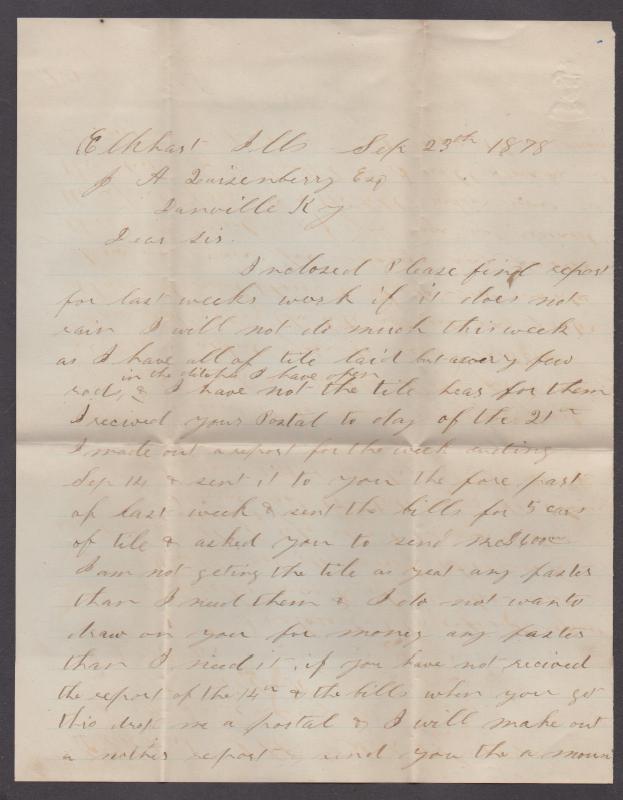 Elkhart Ills Sep 23th 1878
J A Quisenberry Esq
Danville Ky
Dear Sir.
Inclosed Please find report
for last weeks work if it does not
rain I will not do much this week
as I have all of tile laid but a very few
in the ditches I have open
rods, & I have not the tile hear for them
I recived your Postal to day of the 21st
I made out a report for the week ending
Sep 14 & sent it to you the fore part
of last week & sent the bills for 5 cars
of tile & asked you to send me
I am not geting the tile as yeat any faster
than I need them & I do not want to
draw on you for money any faster
than I need it, if you have not recived
the report of the 14th & the bills when you get
this drop me a postal & I will make out
a nother report send you the a moun